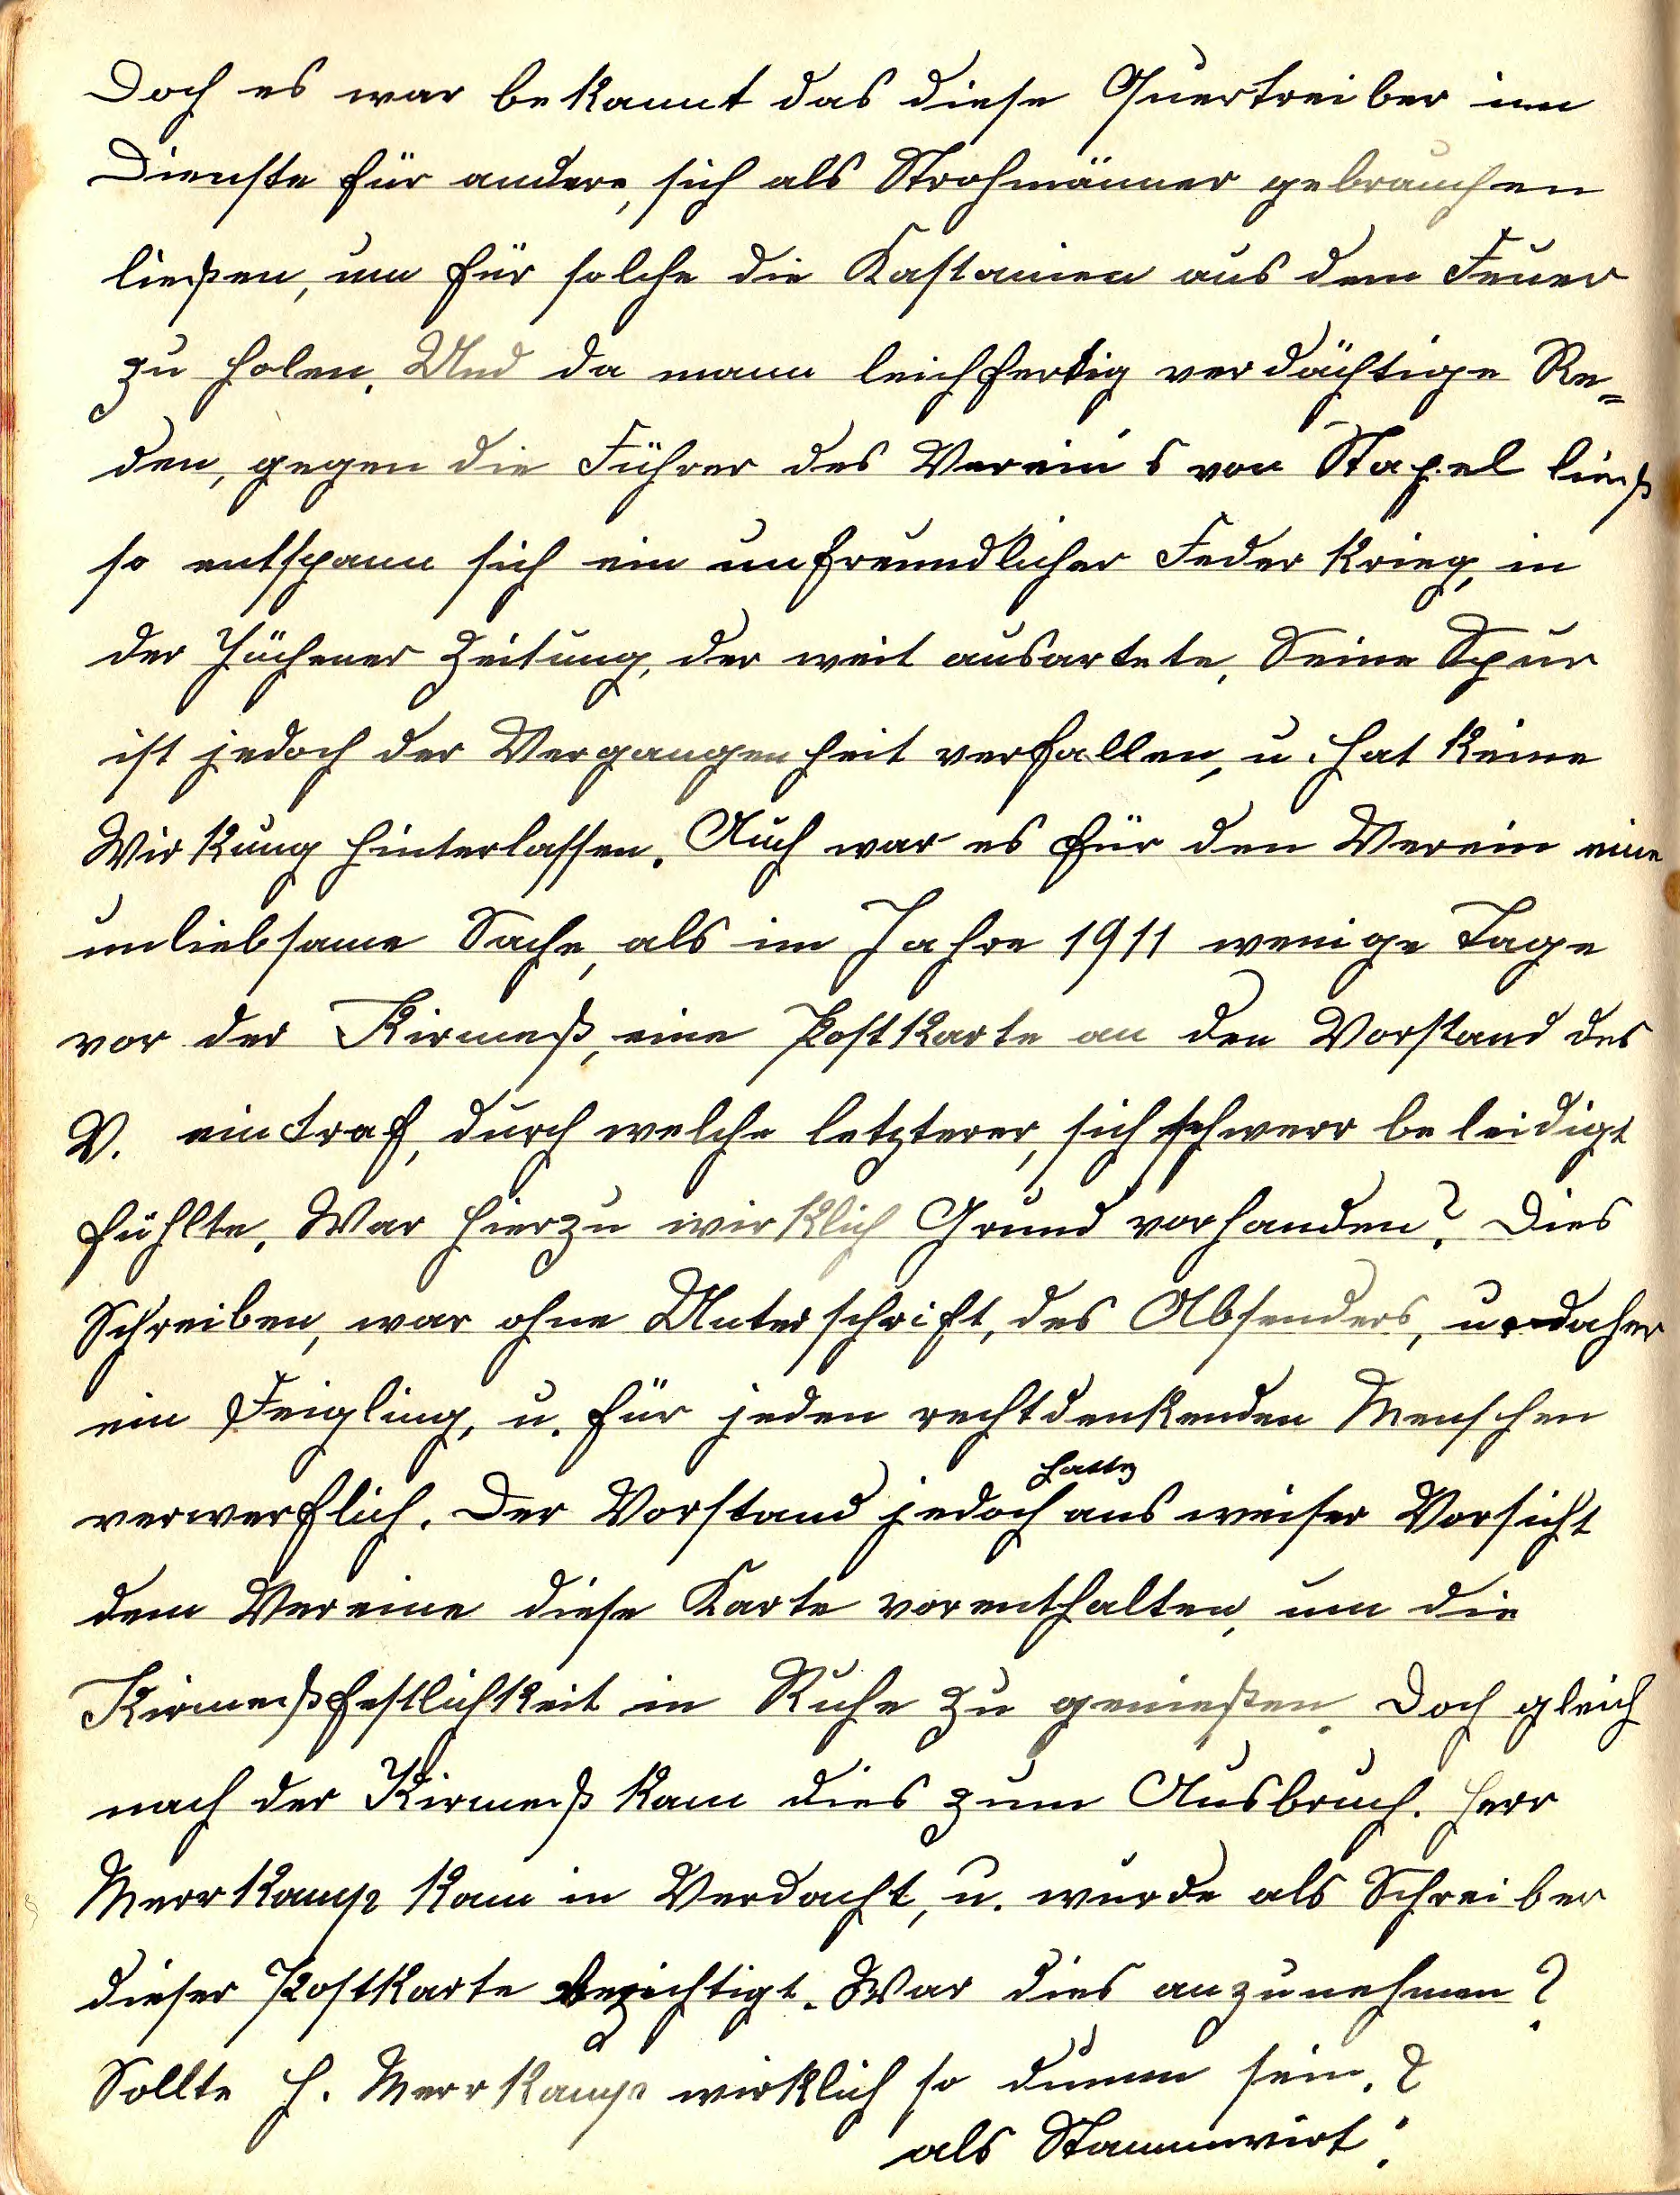 Doch es war bekannt das diese Quertreiber im
Dienste für andere, sich als Strohmänner gebrauchen
ließen, um für solche die Kastanien aus dem Feuer
zu holen. Und da mann leichfertig verdächtige Re=
den, gegen die Führer des Verein's von Stapel ließ
so entspann sich ein unfreundlicher Federkrieg, in
der Jüchener Zeitung, der weit ausartete. Seine Spur
ist jedoch der Vergangenheit verfallen, u. hat keine
Wirkung hinterlassen. Auch war es für den Verein eine
unliebsame Sache, als im Jahre 1911 wenige Tage
vor der Kirmeß, eine Postkarte an den Vorstand des
V. eintraf, durch welche letzterer, sich schwerr beleidigt
fühlte. War hierzu wirklich Grund vorhanden? Dies
Schreiben, war ohne Unterschrift, des Absenders, u. daher
ein Feigling, u. für jeden rechtdenkenden Menschen
verwerflich. Der Vorstand jedoch hatte aus weiser Vorsicht
dem Vereine diese Karte vorenthalten, um die
Kirmeßfestlichkeit in Ruhe zu genießen. Doch gleich
nach der Kirmeß kam dies zum Ausbruch. Herr
Merrkamp kam in Verdacht, u. wurde als Schreiber
dieser Postkarte bezichtigt. War dies anzunehmen?
Sollte H. Merrkamp wirklich so dumm sein.?
als Stammwirt!